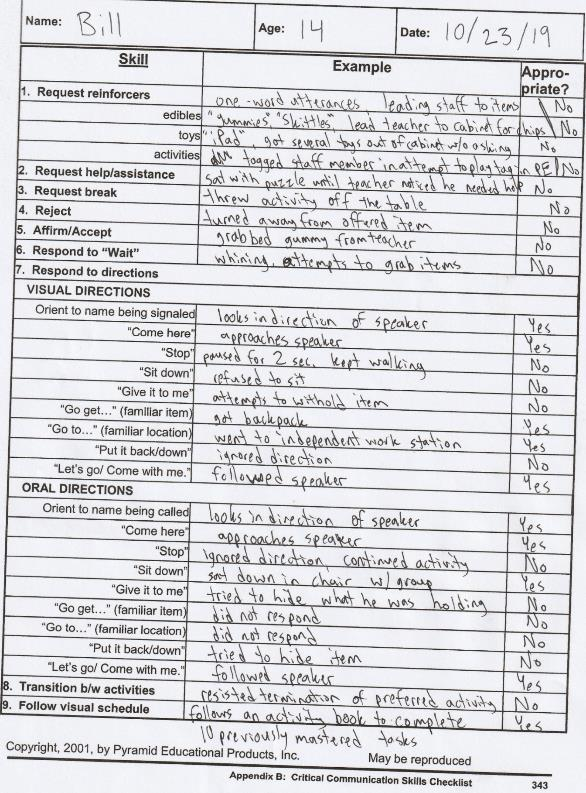 Name: Bill Age: 14 Date: 10/23/19
Skill Example Appro-priate?
1. Request reinforcers one-word utterances, leading staff to items No
edibles "gummies", "Skittles", lead teacher to cabinet for chips No
toys "iPad", got several toys out of cabinet w/o asking No
activities tagged staff member in attempt to play tag in PE No
2. Request help/assistance sat with puzzle until teacher noticed he needed help No
3. Request break threw activity off the table No
4. Reject turned away from offered item No
5. Affirm/Accept grabbed gummy from teacher No
6. Respond to "Wait" whining, attempts to grab items No
7. Respond to directions
VISUAL DIRECTIONS
Orient to name being signaled looks in direction of speaker Yes
"Come here" approaches speaker Yes
"Stop" paused for 2 sec, kept walking No
"Sit down" refused to sit No
"Give it to me" attempts to withold item No
"Go get..." (familiar item) got backpack Yes
"Go to..." (familiar location) went to independent work station Yes
"Put it back/down" ignored direction No
"Let's go/ Come with me." followed speaker Yes
ORAL DIRECTIONS
Orient to name being called looks in direction of speaker Yes
"Come here" approaches speaker Yes
"Stop" ignored direction, continued activity No
"Sit down" sat down in chair w/ group Yes
"Give it to me" tried to hide what he was holding No
"Go get..." (familiar item) did not respond No
"Go to..." (familiar location) did not respond No
"Put it back/down" tried to hide item No
"Let's go/ Come with me." followed speaker Yes
8. Transition b/w activities resisted termination of preferred activity No
9. Follow visual schedule follows an activity book to complete Yes
10 previously mastered tasks
Copyright, 2001, by Pyramid Educational Products, Inc. May be reproduced
Appendix B: Critical Communication Skills Checklist 343